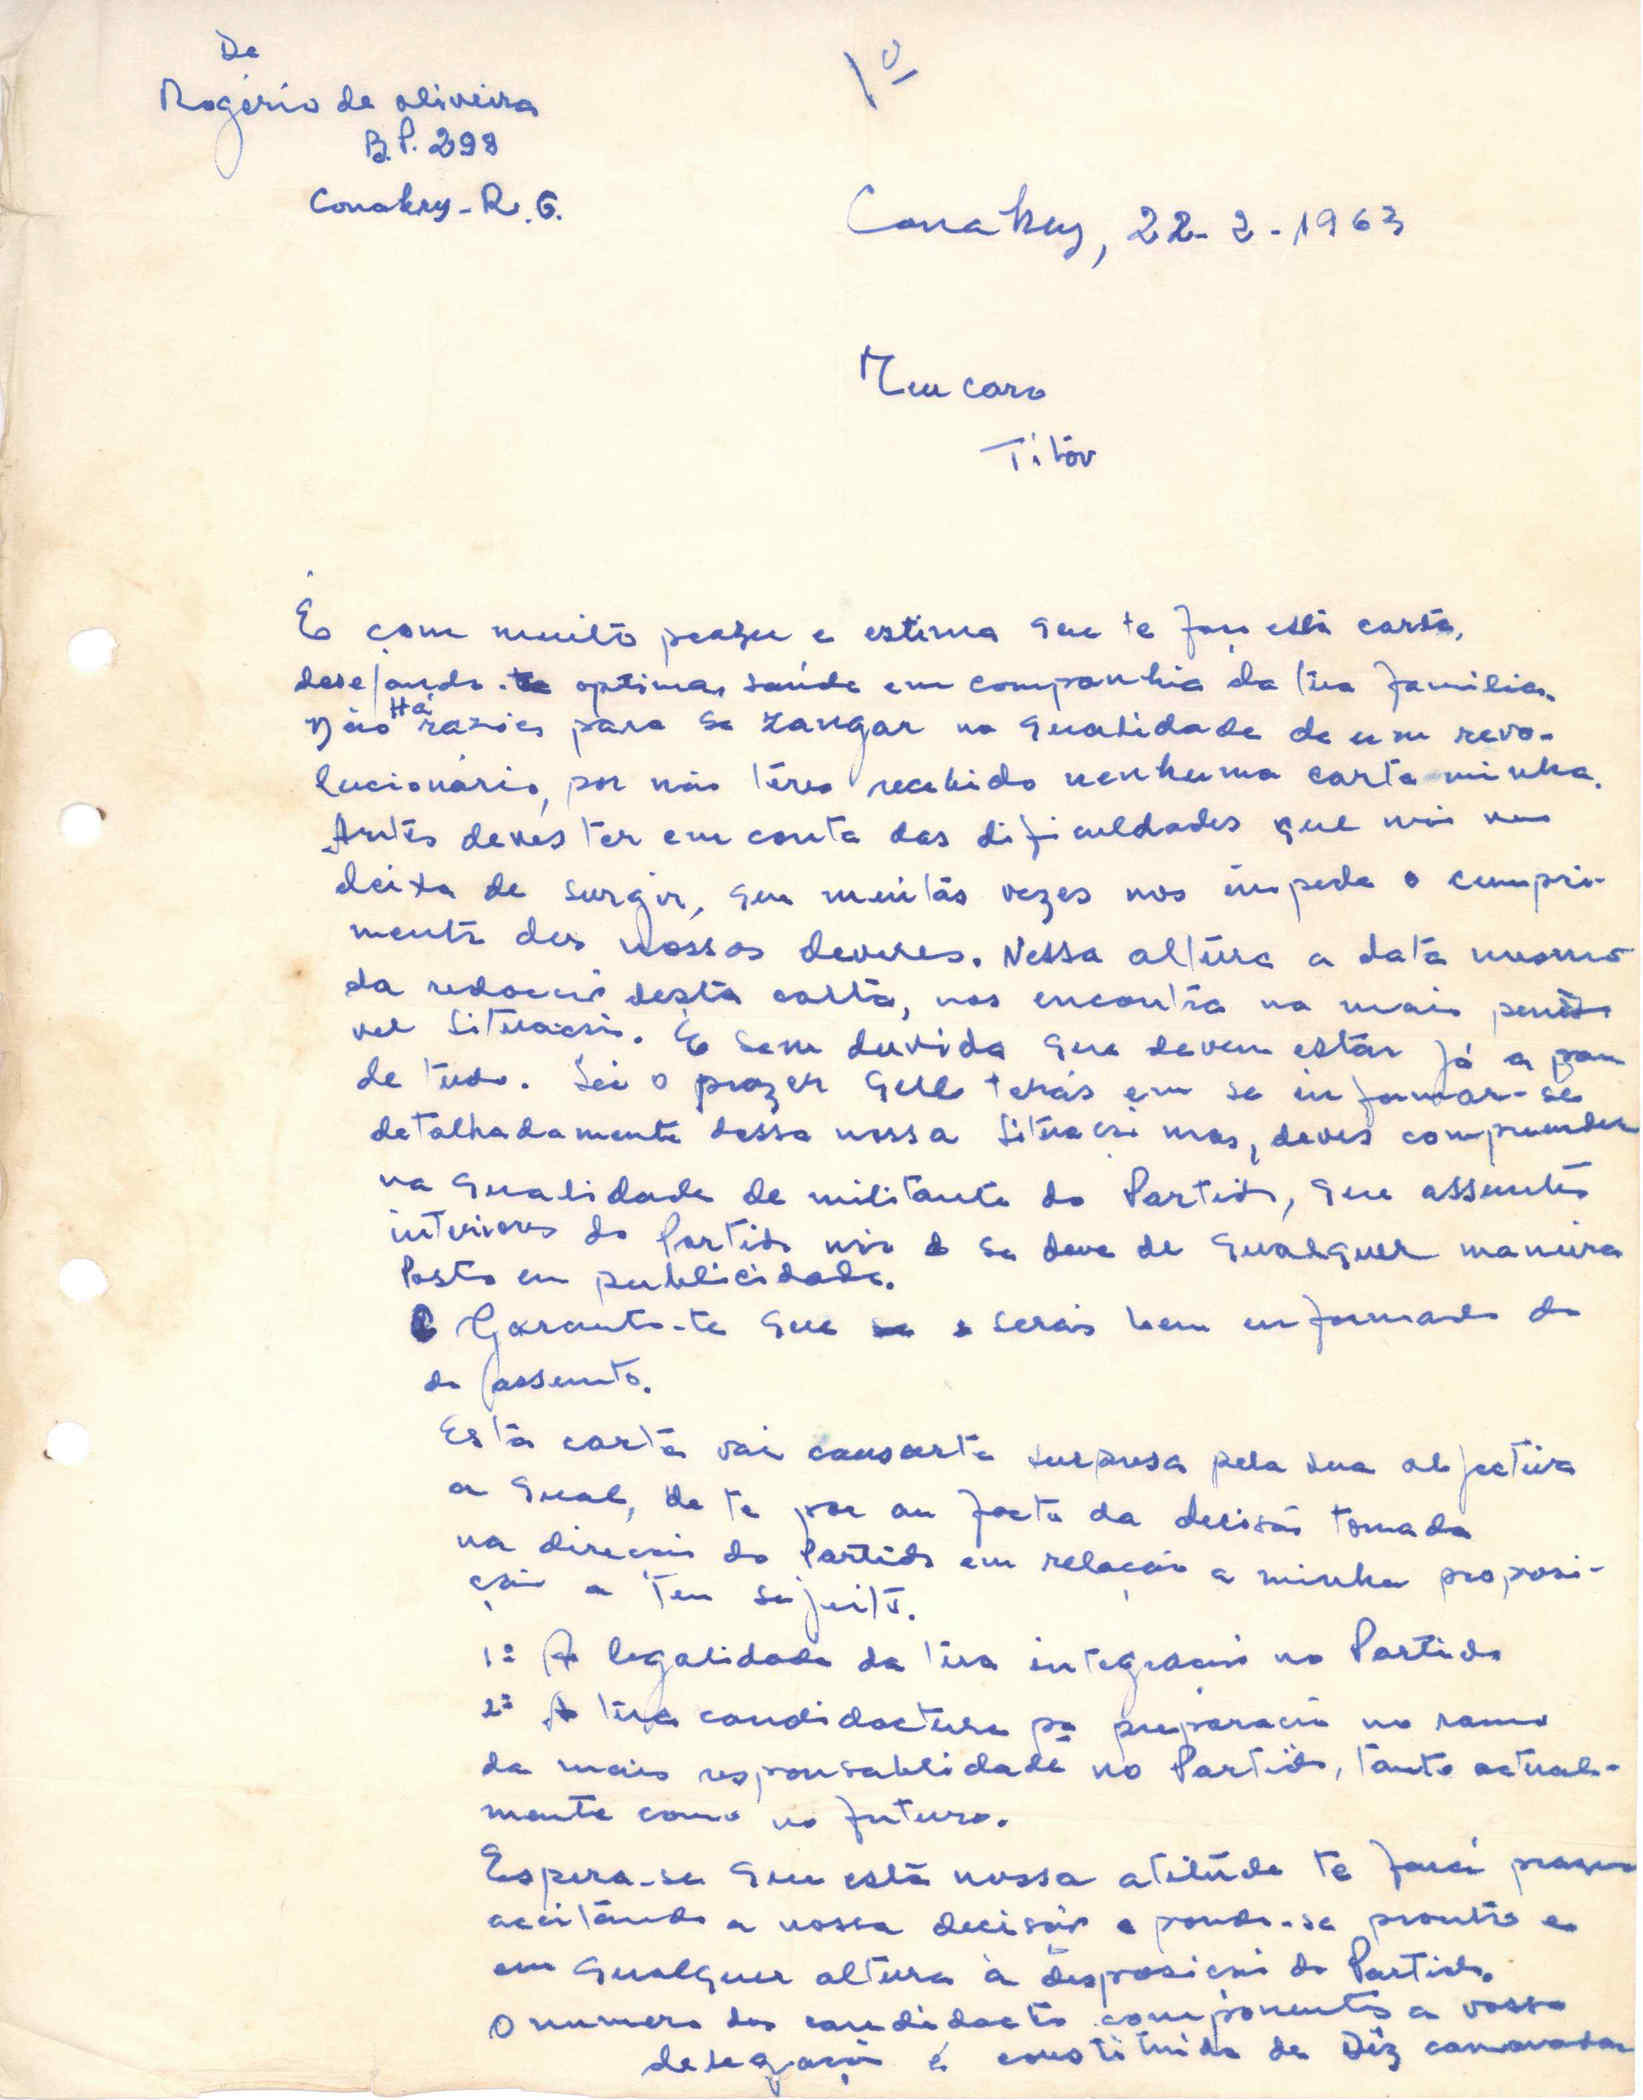 De
Rogério de oliveira
B.P. 298
Conakry - R. G.
Conakry, 22-2-1963
Meu caro
Titóv
É com muito prazer e estima que te faço esta carta,
desejando-te optima saúde em companhia da tua familia.
Não Há razões para se zangar na qualidade de um revo-
lucionário, por não teres recebido nenhuma carta minha.
Antes deves ter em conta das dificuldades que não nos
deixa de surgir, que muitas vezes nos impede o cumpri-
mento dos nossos deveres. Nessa altura a data mesmo
da redacção desta carta, nos encontra na mais pená
vel situação. É sem duvida que devem estar já a par
de tudo. Sei o prazer que terás em se informar-se
detalhadamente dessa nossa situação mas, deves compreender
na qualidade de militante do Partido, que assuntos
interiores do Partido não se deve de qualquer maneira
Posto em publicidade.
Garanto-te que serás bem informado do
do assunto.
Esta carta vai causarte surpresa pela sua objectiva
a qual, de te por au facto da decisão tomada
na direcção do Partido em relação a minha proposi-
ção a teu sujeito.
1º A legalidade da tua integração no Partido
2º A tua candidactura pª preparação no ramo
da mais responsablidade no Partido, tanto actual-
mente como no futuro.
Espera-se que esta nossa atitúde te fará prazer
aceitando a nossa decisão e pondo-se pronto e
em qualquer altura à disposição do Partido.
O numero dos candidacto componentes a vossa
delegação é constituida de Déz camaradas